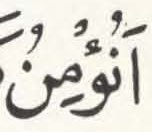 اَنُؤْمِنُ